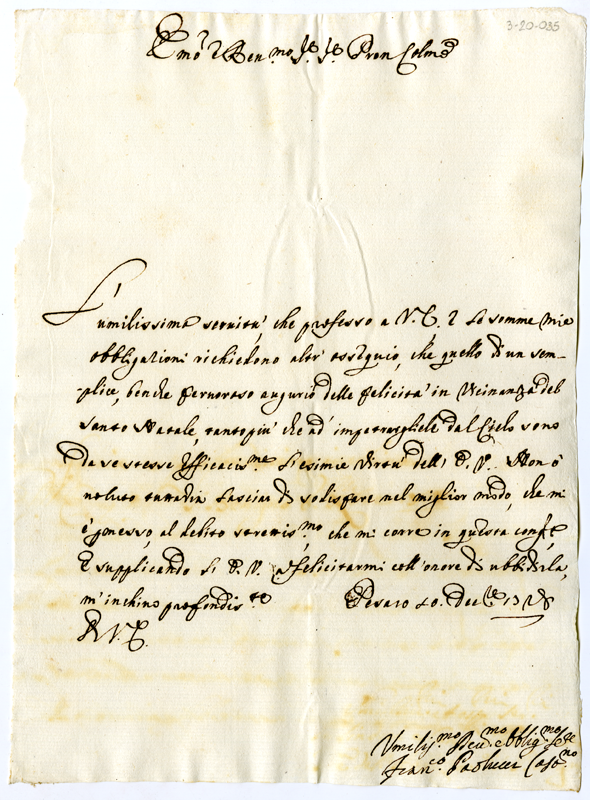 3-20-035
Emo e Ren.mo Sre Sre Pron Colmo
L'
umilissima servitù, che professo a V. E. e le somme mie
obbligazioni richiedono altr' ossequio, che quello di un sem-
-plice, benche fervoroso augurio delle felicità in vicinanza del
Santo Natale, tantopiù che ad impetrargliele dal Cielo sono
da se stesse efficacis.me l'esimie Virtù dell' E. V. Non ò
voluto tuttavia lasciar di sodisfare nel miglior modo, che mi
è permesso, al debito strettis.mo che mi corre in questa
E supplicando l' E. V. a felicitarmi coll' onore di ubbidirla,
m' inchino profondis.te Pesaro 20. Dec.re
D V. E.
Umilis.mo Dev.mo Obblig.mo Se.re
Fran.co Paolucci